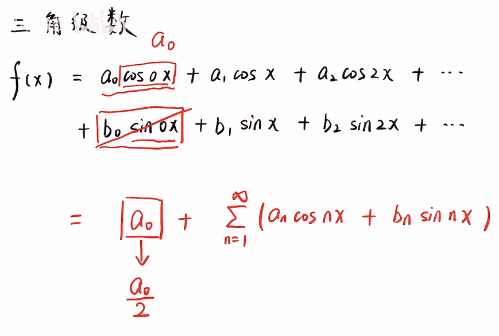 三角级数
a₀
f(x) = a₀ cos 0x + a₁ cos x + a₂ cos 2x + ⋯
+ b₀ sin 0x + b₁ sin x + b₂ sin 2x + ⋯
= a₀ + ∑_{n=1}^{∞} (aₙ cos nx + bₙ sin nx)
↓
a₀/2